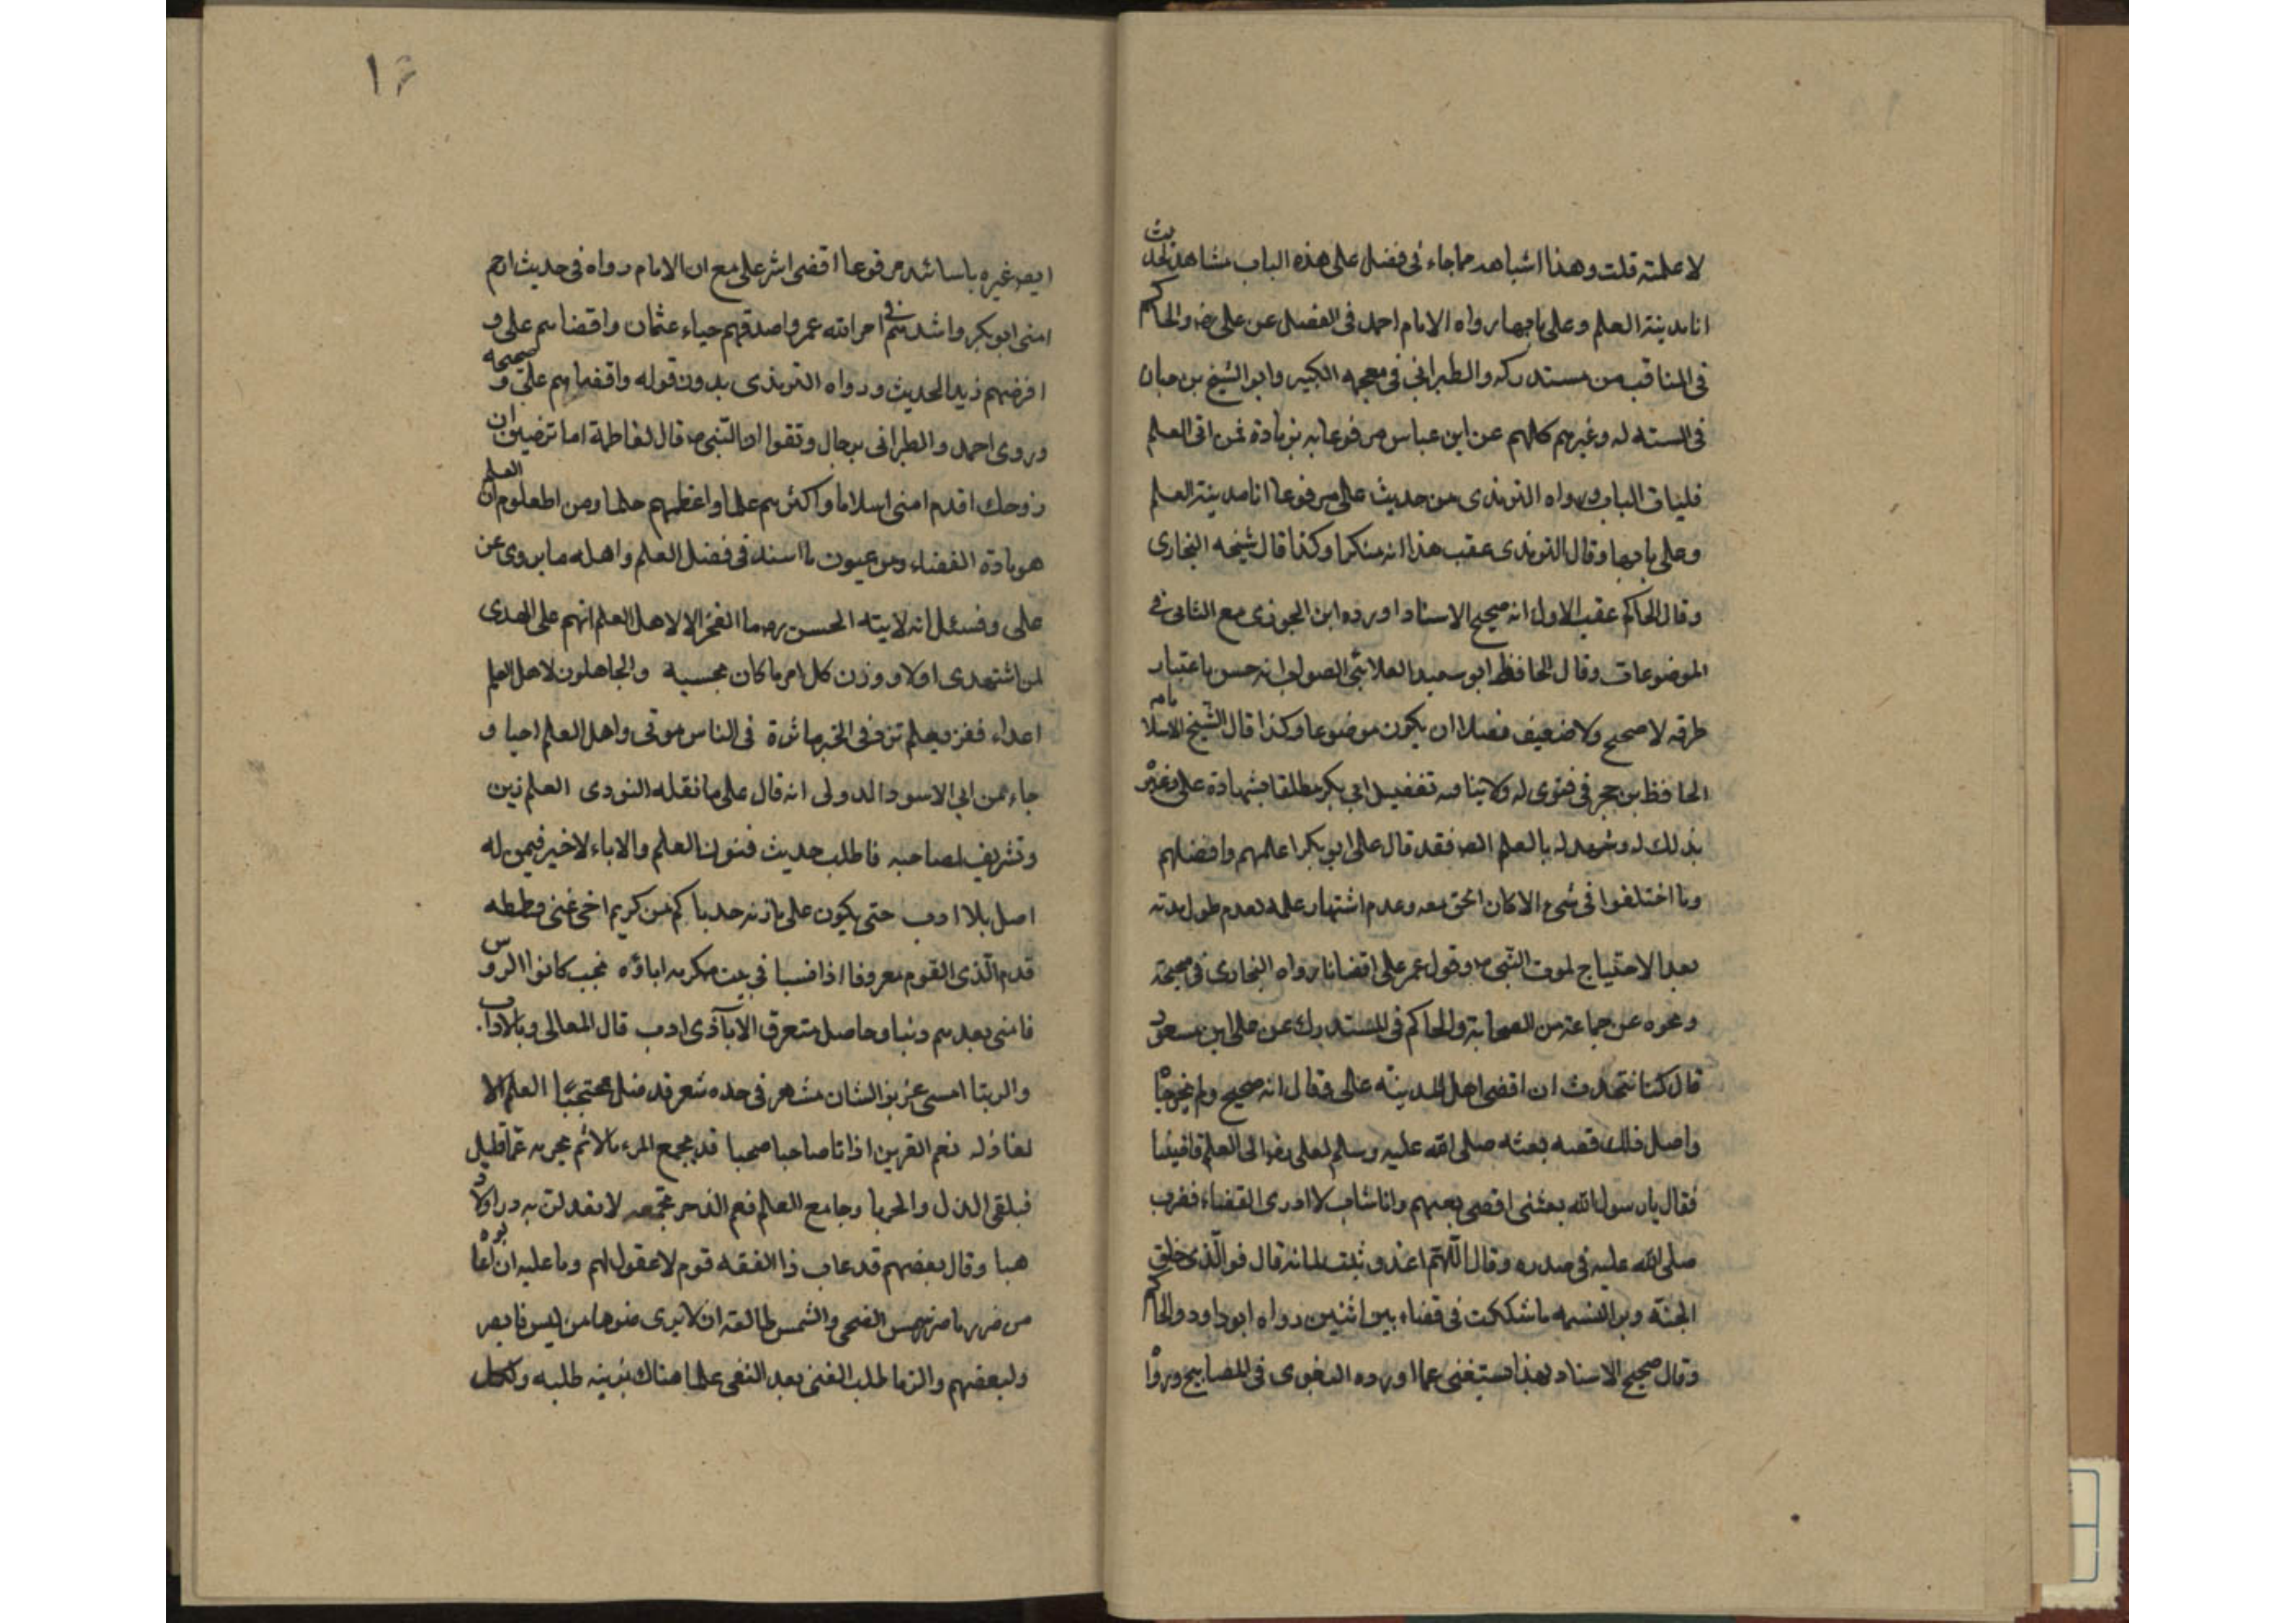 لا علمته قلت وهذا اشباهد مما جاء فى فضل على هذه الباب مشاهد لحديث
انا مدينة العلم وعلى بابها رواه الامام احمد فى الفضل عن على رضه والحاكم
فى المناقب من مستدركه والطبرانى فى معجمه الكبير وابو الشيخ بن حبان
فى السته له وغيرهم كلهم عن ابن عباس مرفوعا به بزيادة فمن اتى العلم
فليات الباب ورواه الترمذى من حديث على مرفوعا انا مدينة العلم
وعلى بابها وقال الترمذى عقب هذا انه منكرا وكذا قال شيخه البخارى
وقال الحاكم عقب الاول انه صحيح الاسناد اورده ابن الجوزى مع الثانى فى
الموضوعات وقال الحافظ ابو سعيد العلائى الصواب انه حسن باعتبار
طرقه لا صحيح ولا ضعيف فضلا ان يكون موضوعا وكذا قال الشيخ الاسلام
الحافظ بن حجر فى فتوى له ولا ينافيه تفضيل ابى بكر مطلقا بشهادة على وغيره
بذلك له وشهد له بالعلم ايضا فقد قال على ابو بكر اعلمهم وافضلهم
وما اختلفوا فى شىء الا كان الحق معه وعدم اشتهار علمه لعدم طول مدته
بعد الاحتياج لموت النبى صه وقول عمر على اقضانا رواه البخارى فى صحيحه
ونحوه عن جماعة من الصحابة والحاكم فى المستدرك عن على ابن مسعود
قال كنا نتحدث ان اقضى اهل المدينة على وقال انه صحيح ولم يخرجاه
واصل ذلك قصه بعثه صلى الله عليه وسلم لعلى رضه الى العلم قاضيا
فقال يا رسول الله بعثنى اقضى بينهم وانا شاب لا ادرى القضاء فضرب
صلى الله عليه فى صدره وقال اللهم اهد وثبت لسانه قال فوالذى خلق
الجنة وبرا النسمه ما شككت فى قضاء بين اثنين رواه ابو داود والحاكم
وقال صحيح الاسناد لهذا يستغنى عما اورده البغوى فى المصابيح ورواه
١٦
ايضه غيره باسانيد مرفوعا اقضى امتى على مع ان الامام رواه فى حديث ارحم
امتى ابو بكر واشدهم فى امر الله عمر واصدقهم حياء عثمان واقضاهم على و
افرضهم زيد الحديث ورواه الترمذى بدون قوله واقضاهم على و صححه
وروى احمد والطبرانى برجال وثقوا ان النبى صه قال لفاطمة اما ترضين ان
زوجك اقدم امتى اسلاما واكثرهم علما واعظمهم حلما ومن المعلوم ان العلم
هو مادة القضاء ومن عيون ما اسند فى فضل العلم واهله ما يروى عن
على وقيل انه لابنه الحسن رضه ما الفخر الا لاهل العلم انهم على الهدى
لمن استهدى اولاء ووزن كل امر ما كان يحسبه والجاهلون لاهل العلم
اعداء ففز بعلم تزد فى الخير مائزة فى الناس موتى واهل العلم احيا و
جاء عن ابى الاسود الدولى انه قال على ما نقله النووى العلم زين
وتشريف لصاحبه فاطلب حديث فنون العلم والاباء لا خير فيمن له
اصل بلا ادب حتى يكون على ما زنه حدبا كم من كريم اخى غنى وطمطه
قدم الذى القوم معروفا اذا نسبا فى بيت مكرمه اباؤه نجب كانوا الروس
فامسى بعدهم ذنبا وحاصل متعرق الابآ ذى ادب قال المعالى وبالاداب
والرتبا امسى عزيز الشان مشاهر فى خده شعر قد ضل محتجبا العلم كلا
نفاذ له نعم القرين اذا ما صاحبا صحبا قد يجمع المرء مالا ثم يحرمه عما قليل
فيلقى الذل والحربا وجامع العلم نعم الذخر تجمعه لا تعدلن به درا ولا
هبا وقال بعضهم قد عاب ذا الفقه قوم لا عقول لهم وما عليه ان عابوه
من ضرر ما ضر شمس الضحى والشمس طالعة ان لا يرى ضوءها من ليس ذا بصر
ولبعضهم والزما طلب الغنى بعد التقى علما هناك بزينه طلبه ولكل